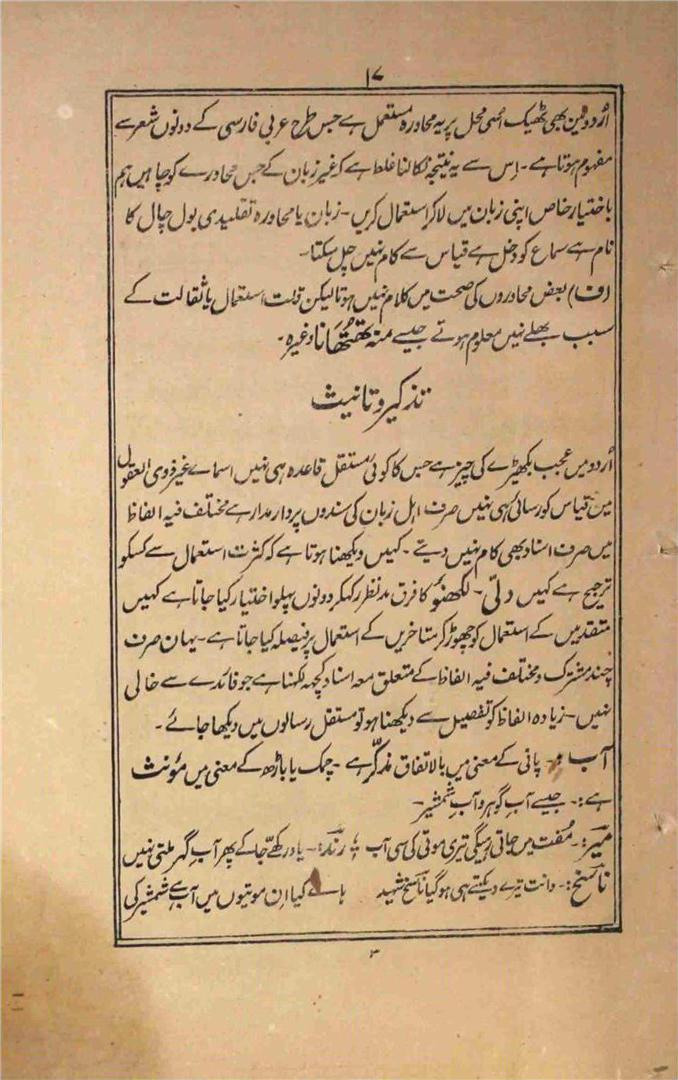 ۱۷
اُردو مین بھی ٹھیک اُسی محل پر یہ محاورہ مستعمل ہے جس طرح عربی فارسی کے دونوں شعر سے
مفہوم ہوتا ہے۔ اِس سے یہ نتیجہ نکالنا غلط ہے کہ غیر زبان کے جس محاورے کو چاہیں ہم
باختیار خاص اپنی زبان میں لاکر استعمال کریں۔ زبان یا محاورہ تقلیدی بول چال کا
نام ہے سماع کو دخل ہے قیاس سے کام نہیں چل سکتا۔
(ف) بعض محاوروں کی صحت میں کلام نہیں ہوتا لیکن قلت استعمال یا ثقالت کے
سبب بھلے نہیں معلوم ہوتے جیسے منہ تھُتھانا وغیرہ۔
تذکیر و تانیث
اُردو میں عجب بکھیڑے کی چیز ہے جس کا کوئی مستقل قاعدہ ہی نہیں اسماے غیر ذوی العقول
مین قیاس کو رسائی ہی نہیں صرف اہل زبان کی سندوں پر دار مدار ہے مختلف فیہ الفاظ
میں صرف اسناد بھی کام نہیں دیتے۔ کہیں دیکھنا ہوتا ہے کہ کثرت استعمال سے کسکو
ترجیح ہے کہیں دلی۔ لکھنؤ کا فرق مد نظر رکھکر دونوں پہلو اختیار کیا جاتا ہے کہیں
متقدمین کے استعمال کو چھوڑ کر متاخرین کے استعمال پر فیصلہ کیا جاتا ہے۔ یہان صرف
چند مشترک و مختلف فیہ الفاظ کے متعلق معہ اسناد کچھ لکھنا ہے جو فائدے سے خالی
نہیں۔ زیادہ الفاظ کو تفصیل سے دیکھنا ہو تو مستقل رسالوں میں دیکھا جائے۔
آب :۔ پانی کے معنی میں بالاتفاق مذکر ہے۔ چمک یا باڑھ کے معنی میں مؤنث
ہے :۔ جیسے آبِ گوہر و آبِ شمشیر۔
میر :۔ مُفت میں جاتی رہیگی تیری موتی کی سی آب ؛ رند :۔ یاد رکھیے جا کے پھر آبِ گہر ملتی نہیں
ناسخ :۔ دانت تیرے دیکھتے ہی ہو گیا ناسخ شہید ہائے کیا ان موتیوں میں آب ہے شمشیر کی
۳